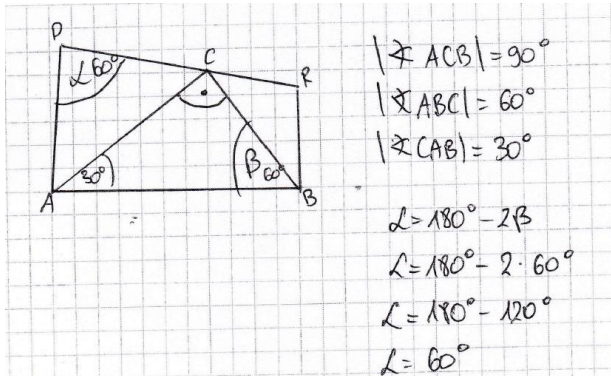 P
C
R
α 60°
30°
β 60°
A
B
|∢ ACB| = 90°
|∢ ABC| = 60°
|∢ CAB| = 30°
α = 180° - 2β
α = 180° - 2 · 60°
α = 180° - 120°
α = 60°